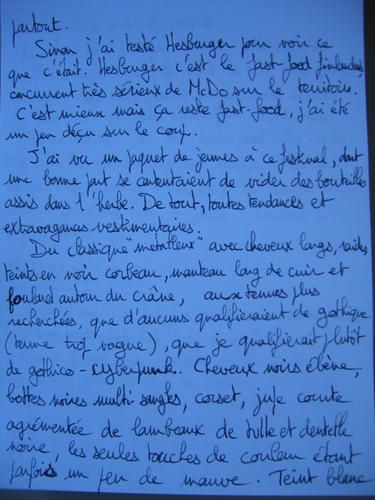 partout.
Sinon j'ai testé Hesburger pour voir ce
que c'était. Hesburger c'est le fast-food finlandais,
concurrent très sérieux de McDo sur le territoire.
C'est mieux mais ça reste fast-food, j'ai été
un peu déçu sur le coup.
J'ai vu un paquet de jeunes à ce festival, dont
une bonne part se contentaient de vider des bouteilles
assis dans l'herbe. De tout, toutes tendances et
extravagances vestimentaires:
Du classique "métalleux" avec cheveux longs, raides
teints en noir corbeau, manteau long de cuir et
foulard autour du crâne, aux tenues plus
recherchées, que d'aucuns qualifieraient de gothique
(terme trop vague), que je qualifierait plutôt
de gothico-cyberpunk. Cheveux noirs ébène,
bottes noires multi sangles, corset, jupe courte
agrémentée de lambeaux de tulle et dentelle
noire, les seules touches de couleur étant
parfois un peu de mauve. Teint blanc